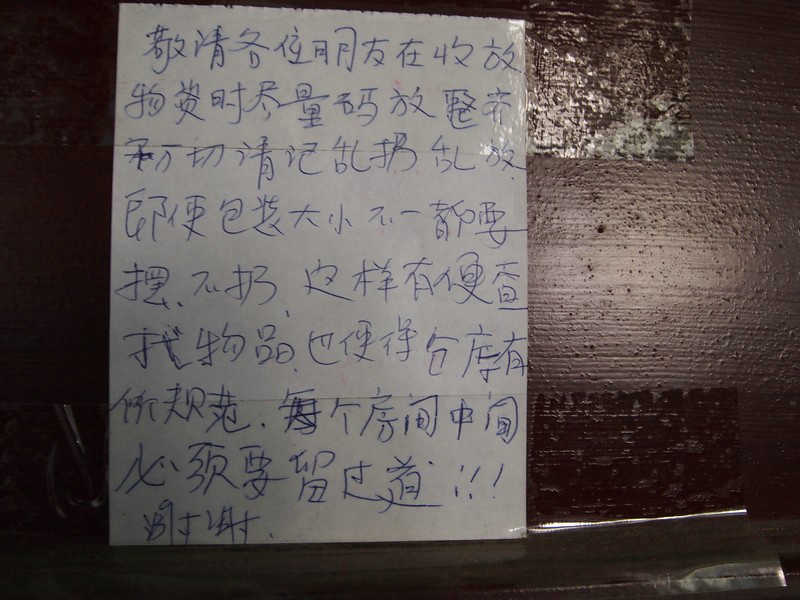 敬请各位朋友在收放
物资时尽量码放整齐
万切请记乱扔乱放
即便包装大小不一都要
摆、不扔、这样有便查
找物品、也使得仓库有
所规范、每个房间中间
必须要留过道!!!
谢谢.